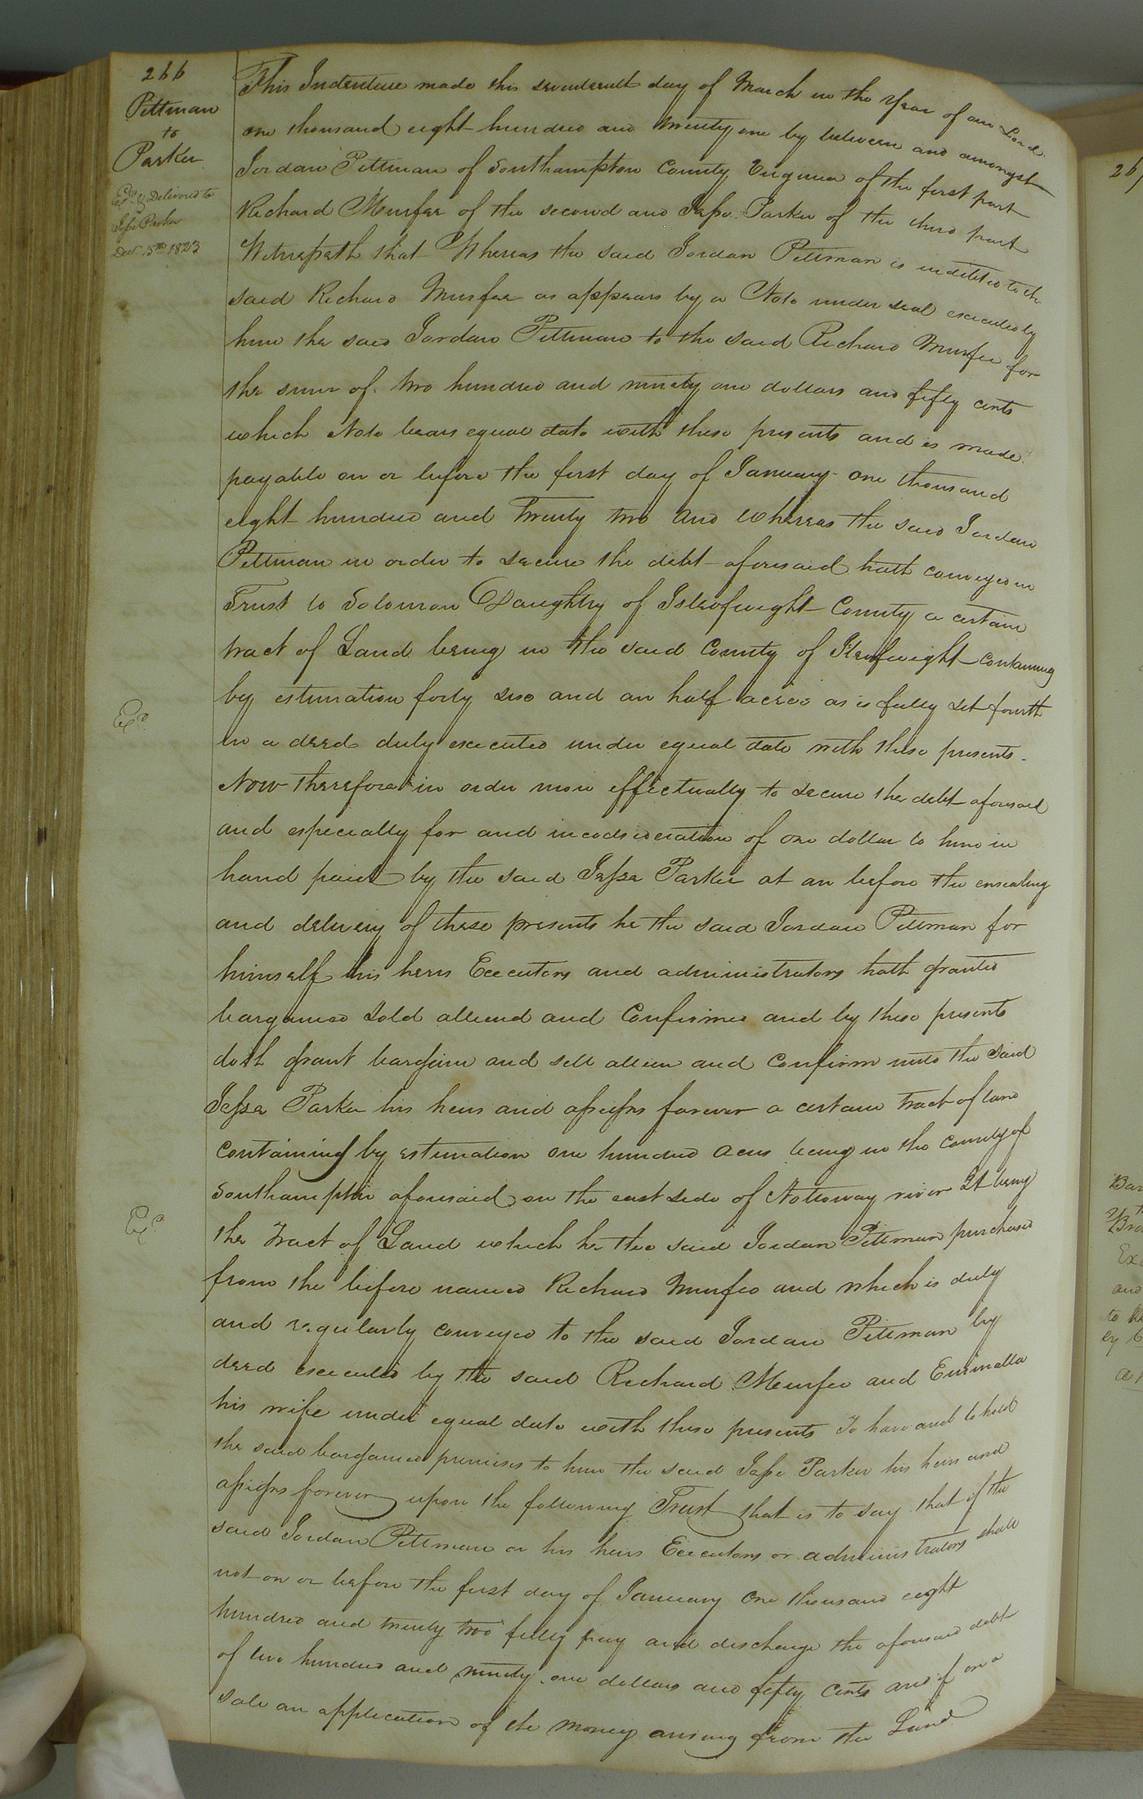 266
Pittman
to
Parker
Exd & Delivered to
Jesse Parker
Decr 5th 1823
This Indenture made this seventeenth day of March in the year of our Lord
one thousand eight hundred and twenty one by between and amongst
Jordan Pittman of Southampton County Virginia of the first part
Richard Murfee of the second and Jesse Parker of the third part
Witnesseth that Whereas the said Jordan Pittman is indebted to the
said Richard Murfee as appears by a Note under seal executed by
him the said Jordan Pittman to the said Richard Murfee for
the sum of two hundred and ninety one dollars and fifty cents
which Note bears equal date with these presents and is made
payable on or before the first day of January one thousand
eight hundred and twenty two And Whereas the said Jordan
Pittman in order to secure the debt aforesaid hath conveyed in
Trust to Solomon Daughtry of Isleofwight County a certain
tract of Land being in the said County of Isleofwight containing
by estimation forty six and an half acres as is fully set fourth
in a deed duly executed under equal date with these presents.
Now therefore in order more effectually to secure the debt aforesaid
and especially for and in consideration of one dollar to him in
hand paid by the said Jesse Parker at an before the ensealing
and delivery of these presents he the said Jordan Pittman for
himself his heirs Executors and administrators hath granted
bargained sold aliend and Confirmed and by these presents
doth grant bargain and sell alien and Confirm unto the said
Jesse Parker his heirs and assigns forever a certain tract of land
containing by estimation one hundred acres being in the county of
Southampton aforesaid on the east side of Nottoway river It being
the tract of Land which he the said Jordan Pittman purchased
from the before named Richard Murfee and which is duly
and regularly conveyed to the said Jordan Pittman by
deed executed by the said Richard Murfee and
his wife under equal date with these presents To have and to hold
the said bargained premises to him the said Jesse Parker his heirs and
assigns forever upon the following Trust that is to say that if the
said Jordan Pittman or his heirs Executors or administrators shall
not on or before the first day of January One thousand eight
hundred and twenty two fully pay and discharge the aforesaid debt
of two hundred and ninety one dollars and fifty cents and if on a
sale an application of the money arising from the Land
Exd
Exd
267
Bar
to
Bro
Ex
and
to
ey